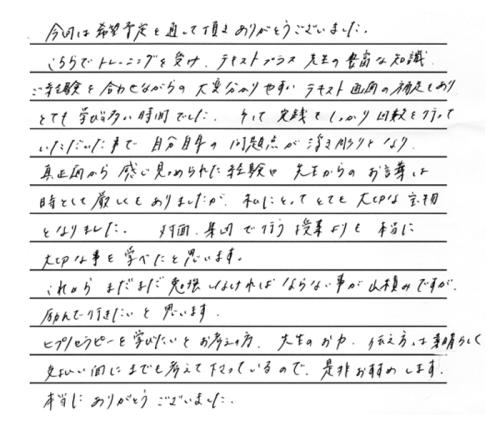 今回は希望予定を通して頂きありがとうございました。
こちらでトレーニングを受け、テキストプラス先生の豊富な知識
ご経験を合わせながらの大変分かりやすいテキスト画面の補足もあり
とても学び多い時間でした。そして実践もしっかり回数を行って
いただいた事で自分自身の問題点が浮き彫りとなり、
真正面から感じ見つめられた経験に先生からのお言葉は
時として厳しくもありましたが、私にとってとても大切な宝物
となりました。対面、集団で行う授業よりも本当に
大切な事を学べたと思います。
これからまだまだ勉強しなければならない事が山積みですが、
励んで行きたいと思います。
ヒプノセラピーを学びたいとお考えの方、先生のお力、伝え方は素晴らしく
短い間にまでも考えて下さっているので、是非お勧めします。
本当にありがとうございました。